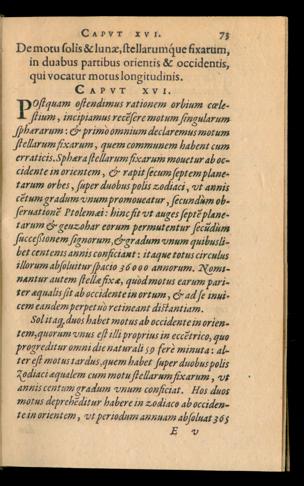 CAPVT XVI. 73
De motu solis & lunæ, stellarumq́ue fixarum,
in duabus partibus orientis & occidentis,
qui vocatur motus longitudinis.
CAPVT XVI.
POstquam ostendimus rationem orbium cœle-
stium, incipiamus recẽsere motum singularum
sphærarum: & primò omnium declaremus motum
stellarum fixarum, quem communem habent cum
erraticis. Sphæra stellarum fixarum mouetur ab oc-
cidente in orientem, & rapit secum septem plane-
tarum orbes, super duobus polis zodiaci, vt annis
cẽtum gradum vnum promoueatur, secundùm ob-
seruationẽ Ptolemæi: hinc fit vt auges septẽ plane-
tarum & geuzohar eorum permutentur secũdùm
successionem signorum, & gradum vnum quibusli-
bet centenis annis conficiant: itaque totus circulus
illorum absoluitur spacio 36000 annorum. Nomi-
nantur autem stellæ fixæ, quòd motus earum pari-
ter æqualis sit ab occidente in ortum, & ad se inui-
cem eandem perpetuò retineant distantiam.
Sol itaq; duos habet motus ab occidente in orien-
tem, quorum vnus est illi proprius in eccẽtrico, quo
progreditur omni die naturali 59 ferè minuta: al-
ter est motus tardus, quem habet super duobus polis
zodiaci æqualem cum motu stellarum fixarum, vt
annis centum gradum vnum conficiat. Hos duos
motus deprehẽditur habere in zodiaco ab occiden-
te in orientem, vt periodum annuam absoluat 365
E v